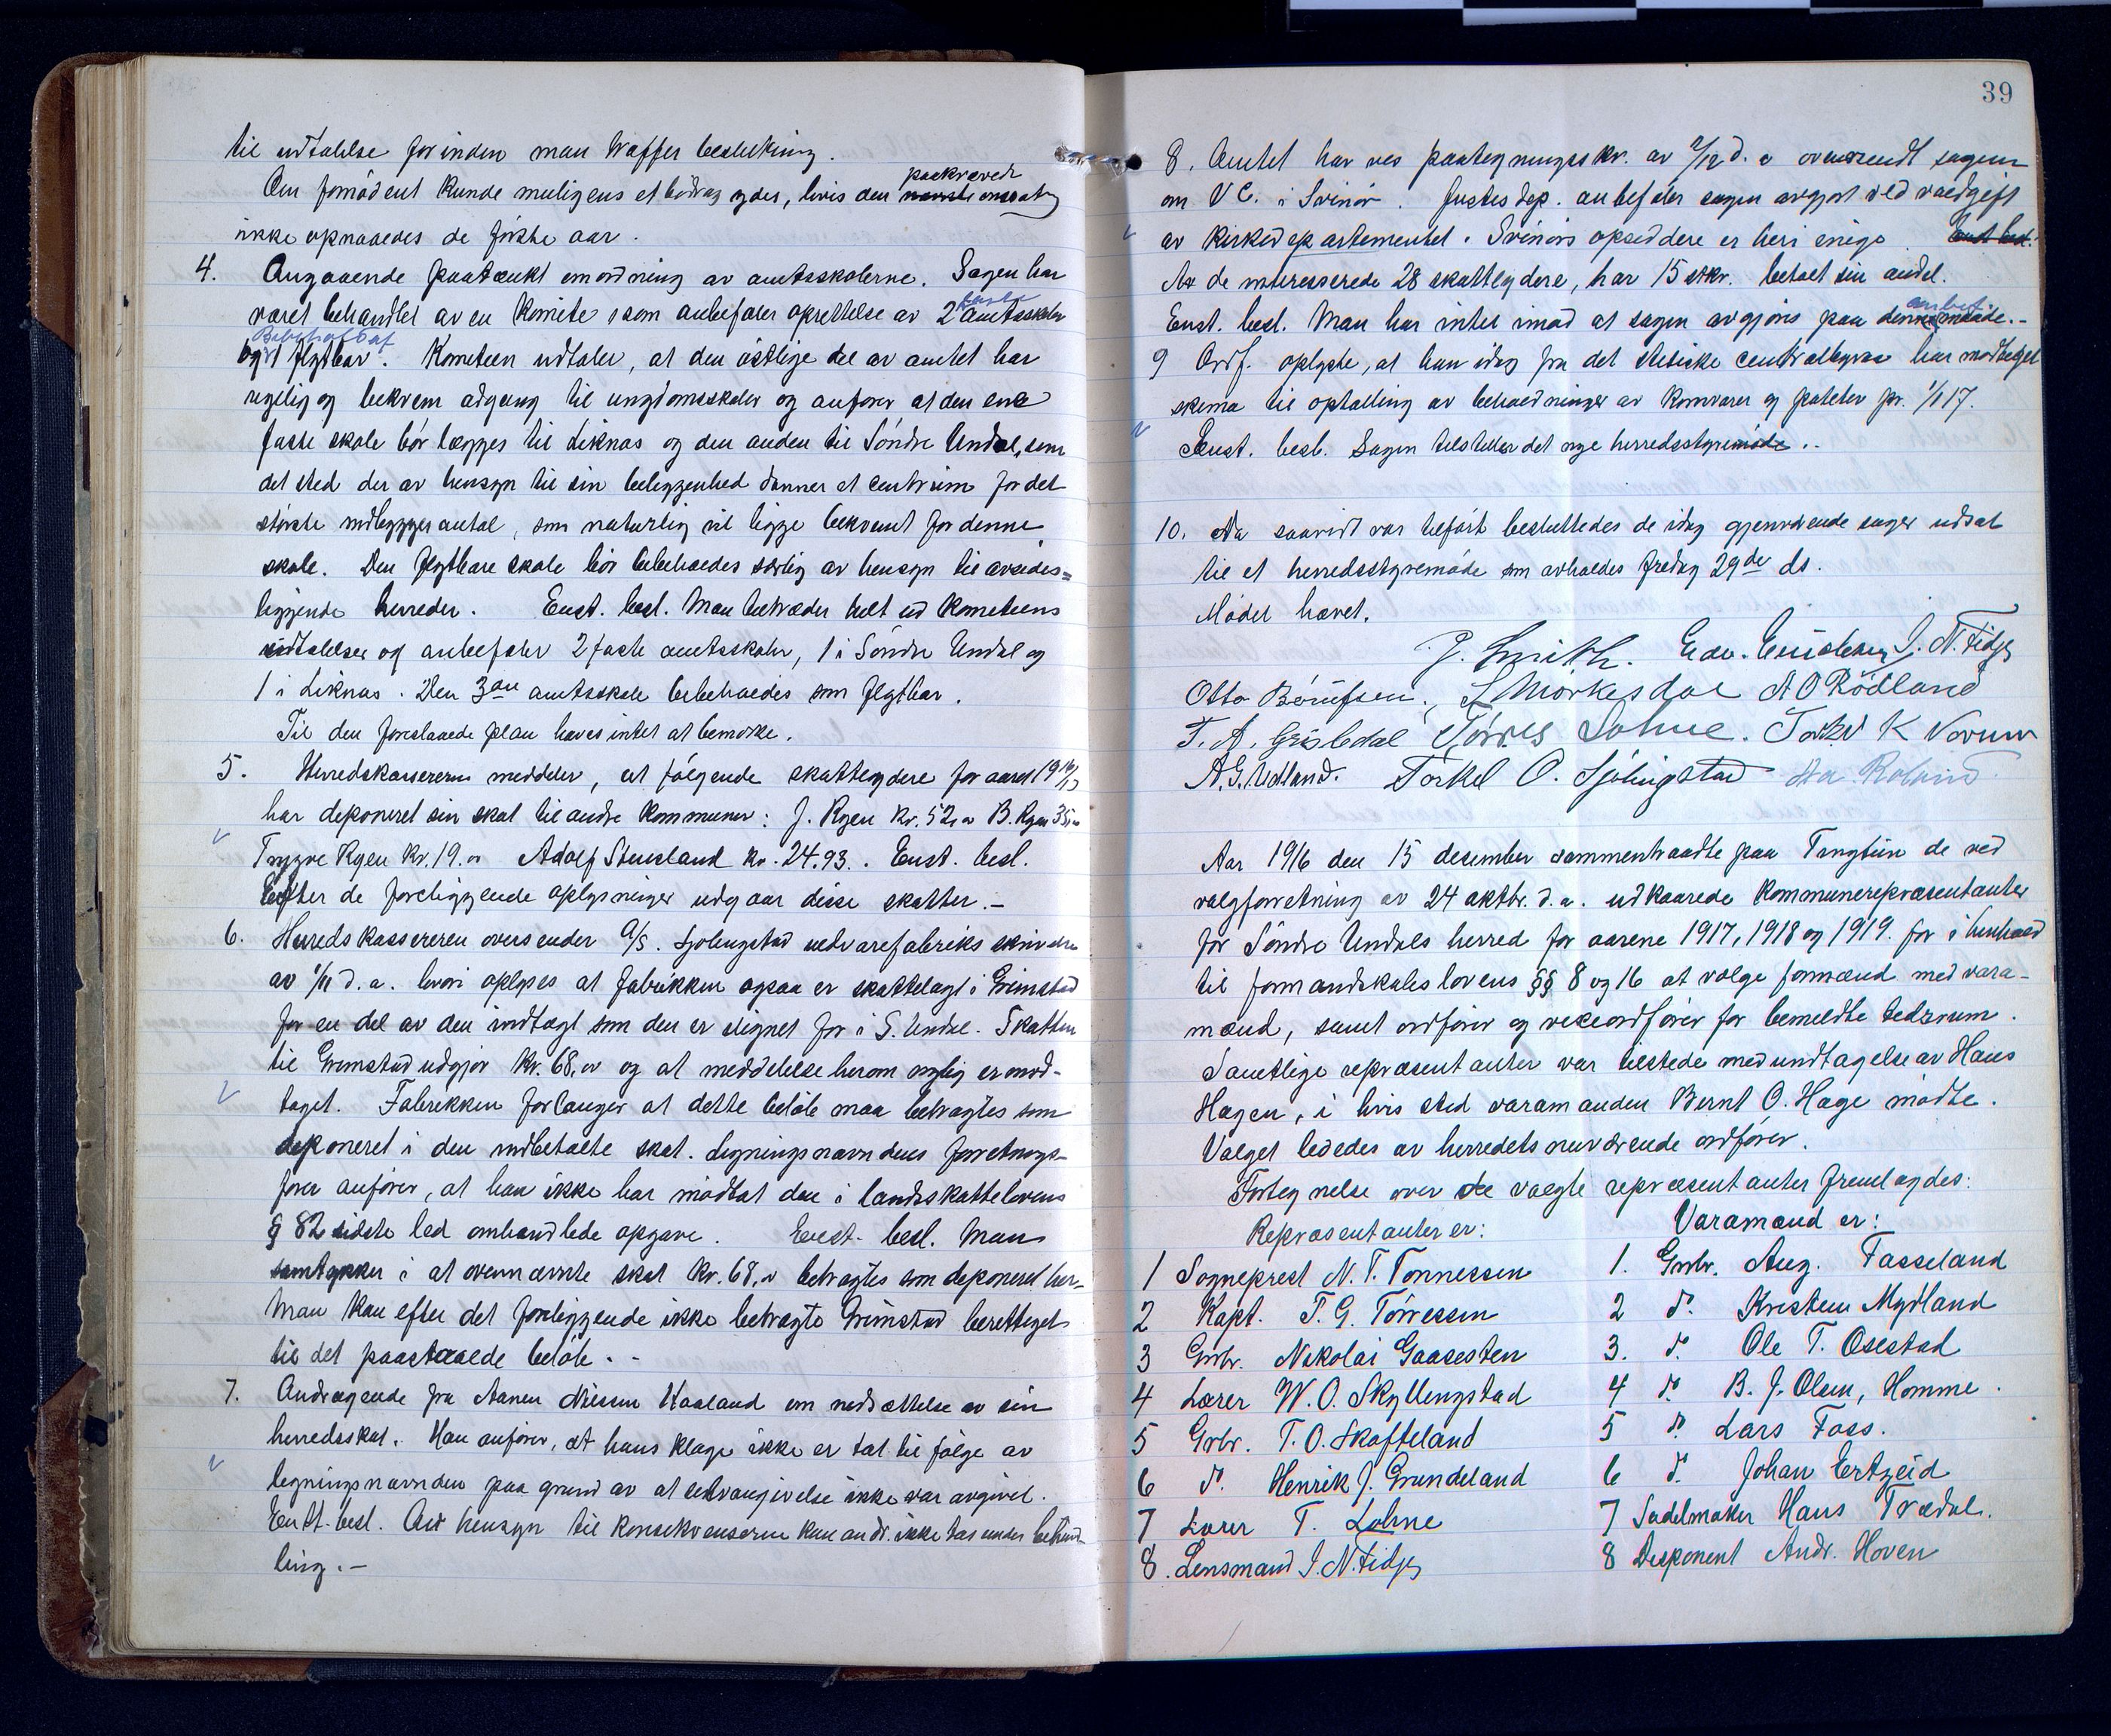 til udtalelse forinden man træffer beslutning.
Om fornødent kunde muligens et bidrag ydes, hvis den paakrævede omsætn
ikke opnaaedes de første aar.
4. Angaaende paatænkt omordning av amtsskolerne. Sagen har
været behandlet av en komite som anbefaler oprettelse av 2 faste amtsskoler
flytbar. Komiteen udtaler, at den østlige del av amtet har
rigelig og bekvem adgang til ungdomsskoler og anfører at den ene
faste skole bør lægges til Liknes og den anden til Søndre Undal, som
det sted der av hensyn til sin beliggenhed danner et centrum for det
største indbyggerantal, som naturlig vil ligge bekvemt for denne
skole. Den flytbare skole bør bibeholdes særlig av hensyn til avsides=
liggende herreder. Enst. besl. Man tiltræder helt ud komiteens
udtalelser og anbefaler 2 faste amtsskoler, 1 i Søndre Undal og
1 i Liknes. Den 3die amtsskole bibeholdes som flytbar.
Til den foreslaaede plan haves intet at bemærke.
5. Herredskassereren meddeler, at følgende skatteydere for aaret 1916/17
har deponeret sin skat til andre kommuner: J. Ryen kr. 52,00 B. Ryen 35,00
Trygve Ryen kr. 19.00 Adolf Stensland kr. 24.93. Enst. besl.
Efter de foreliggende oplysninger udgaar disse skatter.-
6. Herredskassereren oversender A/S. Sjølingstad uldvarefabriks skrivelse
av 1/11 d.a. hvori oplyses at fabrikken ogsaa er skattelagt i Grimstad
for en del av den indtægt som den er lignet for i S. Undal. Skatten
til Grimstad udgjør kr. 68,00 og at meddelelse herom nylig er mod-
taget. Fabrikken forlanger at dette beløb maa betragtes som
deponeret i den indbetalte skat. Ligningsnævndens forretnings-
fører anfører, at han ikke har modtat den i landsskattelovens
§ 82 sidste led omhandlede opgave. Enst. besl. Man
samtykker i at ovennævnte skat kr. 68,00 betragtes som deponeret her-
Man kan efter det foreliggende ikke betragte Grimstad berettiget
til det paastaaede beløb.-
7. Andragende fra Aanen Nilsen Haaland om nedsættelse av sin
herredsskat. Han anfører, at hans klage ikke er tat til følge av
ligningsnævnden paa grund av at selvangivelse ikke var avgivet.
Enst. besl. Av hensyn til konsekvenserne kan andr. ikke tas under behand
ling.-
39
8. Amtet har ved paategningsskr. av 2/12 d. a oversendt sagen
om V C. i Svinør. Justisdep. anbefaler sagen avgjort ved vedgift
av Kirkedepartementet. Svinørs opsiddere er heri enige. Enst. besl.
Av de interesserede 28 skatteydere, har 15 stkr. betalt sin andel.
Enst. besl. Man har intet imod at sagen avgjøres paa denne anbef. maade.-
9 Ordf. oplyste, at han idag fra det statistiske centralbyraa har modtaget
skema til optælling av beholdninger av kornvarer og poteter pr. 1/1 17.
Enst. besl. Sagen tilstilles det nye herredsstyre.-
10. Da saavidt var behørt besluttedes de idag gjenværende sager udsat
til et herredsstyremøde som avholdes fredag 29de ds.
Mødet hævet.
J. Smith. Edv. J. N. Fidje
Otto Berntsen., S Mørkesdal A O Rødland
T. A. Grisledal Tørres Lohne. Torkel K Vorum
A. G. Udland. Torkel O. Sjølingstad
Aar 1916 den 15 desember sammentraadte paa Tangtun de ved
valgforretning av 24 oktbr. d.a. udkaarede kommunerepræsentanter
for Søndre Undals herred for aarene 1917, 1918 og 1919. for i henhold
til formandskabslovens §§ 8 og 16 at vælge formænd med vara-
mænd, samt ordfører og viceordfører for bemeldte tidsrum.
Samtlige repræsentanter var tilstede med undtagelse av Hans
Hagen, i hvis sted varamanden Bernt O. Hage mødte.
Valget lededes av herredets nuværende ordfører.
Fortegnelse over de valgte repræsentanter fremlagdes:
Repræsentanter er: Varamænd er:
1 Sogneprest N. T. Tønnessen 1. Grbr. Aug. Tasseland
2 Kapt. T. G. Tørressen 2 do. Kristen Mydland
3 Grbr. Nikolai Gaasesten 3. do. Ole T. Osestad
4 Lærer W. O. Skyllingstad 4 do. B. J. Olsen, Homme.
5 Grbr. T. O. Skofteland 5 do. Lars Foss.
6 do. Henrik J. Grundeland 6 do. Johan Ertzeid
7 Lærer T. Lohne 7 Sadelmaker Hans Trædal.
8. Lensmand J. N. Fidje 8 Disponent Andr. Hoven